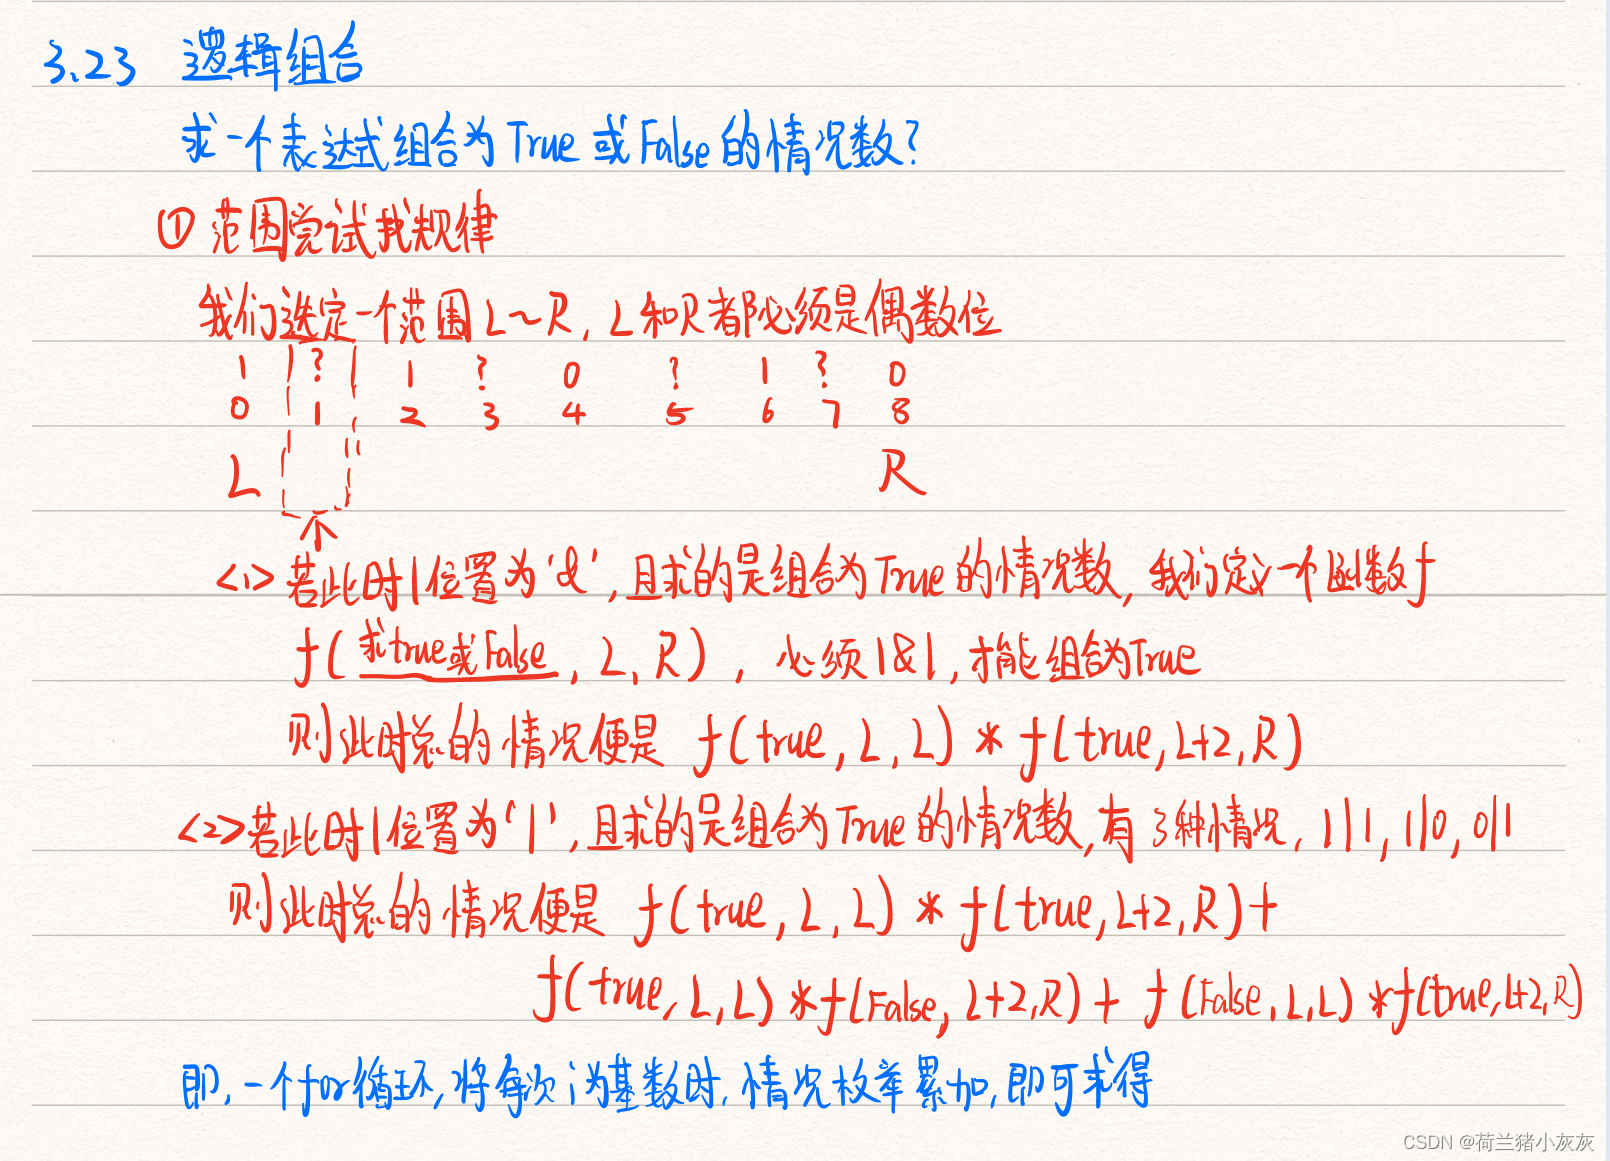 3.23 逻辑组合
求一个表达式组合为True或False的情况数?
① 范围尝试找规律
我们选定一个范围L~R, L和R都必须是偶数位
1 ? 1 ? 0 ? 1 ? 0
0 1 2 3 4 5 6 7 8
L R
<1> 若此时1位置为'&', 且求的是组合为True的情况数, 我们定义一个函数f
f(求true或False, L, R), 必须1&1, 才能组合为True
则此时总的情况便是 f(true, L, L) * f(true, L+2, R)
<2>若此时1位置为'|', 且求的是组合为True的情况数, 有3种情况, 1|1, 1|0, 0|1
则此时总的情况便是 f(true, L, L) * f(true, L+2, R) +
f(true, L, L) * f(False, L+2, R) + f(False, L, L) * f(true, L+2, R)
即, 一个for循环, 将每次i为基数时, 情况枚举累加, 即可求得
CSDN @荷兰猪小灰灰